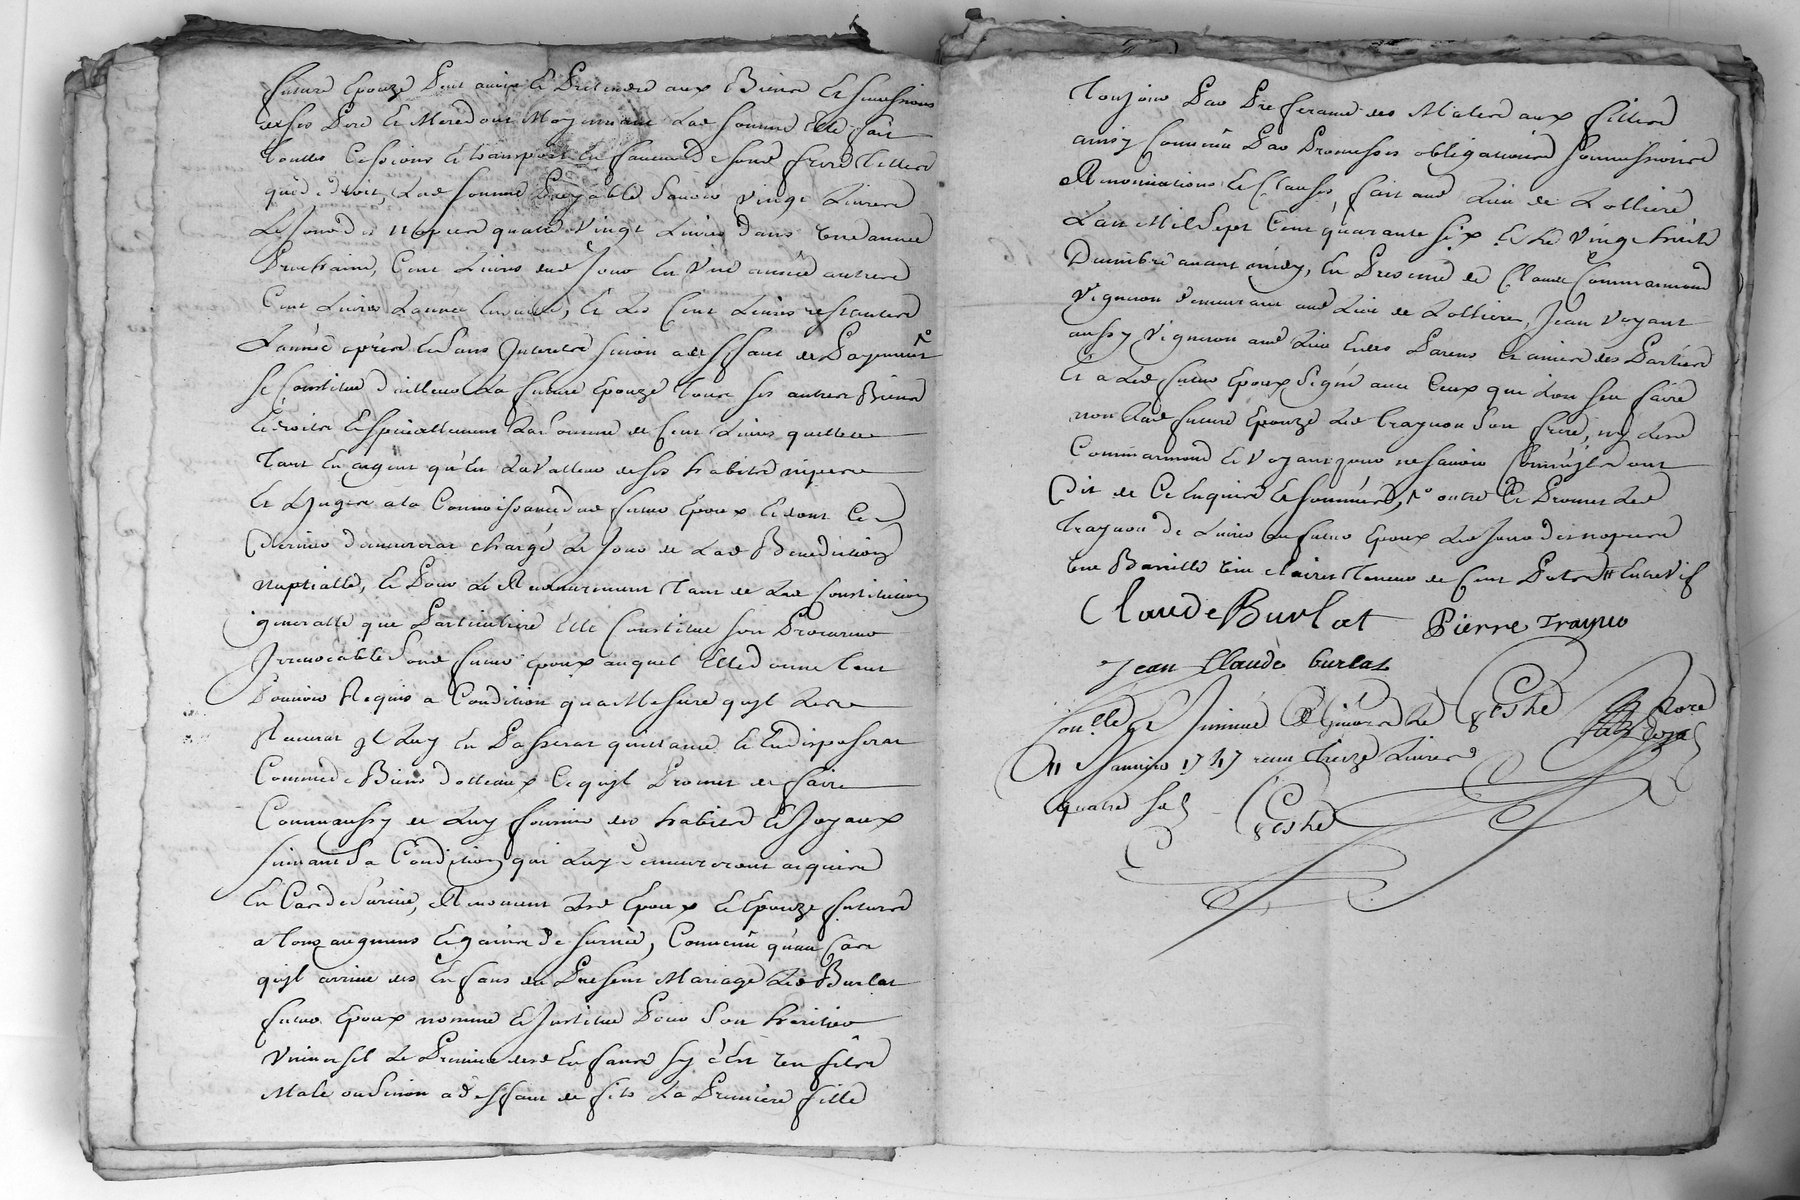 future Epouze Peut avoir Et Pretendre aux Biens Et successions
de ses Pere Et Mere dont Moyennant Lad somme Elle fait
touttes Cessions Et transport En faveur de sond frere telles
que de droit, Lad somme Payable Savoir vingt Livres
Le Jour des nopces quatre vingt Livres dans une année
Prochaine, Cent Livres dud Jour En une année autres
Cent Livres L'année Ensuitte, Et Les Cent Livres restantes
L'année après Et Sans Interets sinon a deffaut de Payement
se Constitue d'ailleurs La future Epouze tous ses autres Biens
Et droits Et specialement La Somme de Cent Livres
tant En argent qu'En La valleur de ses habits nipes
Et Linges a la Connoissance dud futur Epoux Et dont Ce
dernier demeurerat chargé Le Jour de Lad Benediction
nuptialle, Et Pour Le Recouvrement tant de Lad Constitution
generalle que Particuliere Elle Constitue son Procureur
Irrevocable Led futur Epoux auquel Elle donne tout
Pouvoir Requis a Condition qu'a Mesure qu'il
Recevrat Il Luy En Passerat quittance Et En disposerat
Comme de Biens dotteaux Ce qu'il Promet de faire
Comm'aussy de Luy fournir des habits Et Joyaux
suivant Sa Condition qui Luy demeureront acquis
En Cas de Survie, Renoncent Lesd Epoux Et Epouze futurs
a tous augmens Et gains de survie, Convenu qu'au Cas
qu'il arrive des Enfans du Present Mariage Led Burlat
futur Epoux nomme Et Institue Pour Son heritier
Universel Le Premier desd Enfans sy c'Est un fils
Male ou Sinon a deffaut de fils La Premiere fille
toujours Par Preferance des Males aux filles
ainsy Convenu Par Promesses obligations Soumissions
Renonciations Et Clauses, fait aud Lieu de Lollière
L'an Mil Sept Cent quarante six Et Le vingt huit
Decembre avant midy, En Presence de Claude Commarmond
vigneron demeurant aud Lieu de Lollière, Jean Voyant
aussy vigneron aud Lieu Et des Parens Et amis des Parties
Et a Led futur Epoux Signé avec Ceux qui L'on sçu faire
non Lad future Epouze Led traynon Son frere, ny Lesd
Commarmond Et Voyant pour ne Savoir Comm'ils ont
Dit de Ce Enquis Et sommés, outre Ce Promet Led
traynon de Livrer au futur Epoux Led Jour des nopces
une Baraille vin clairet teneur de Cent Pots
Claude Burlat Pierre Trayno
Jean Claude burlat
Con.lle Et Insinué a Givors Le
11 Janvier 1747 reçu treize Livres
quatre sols